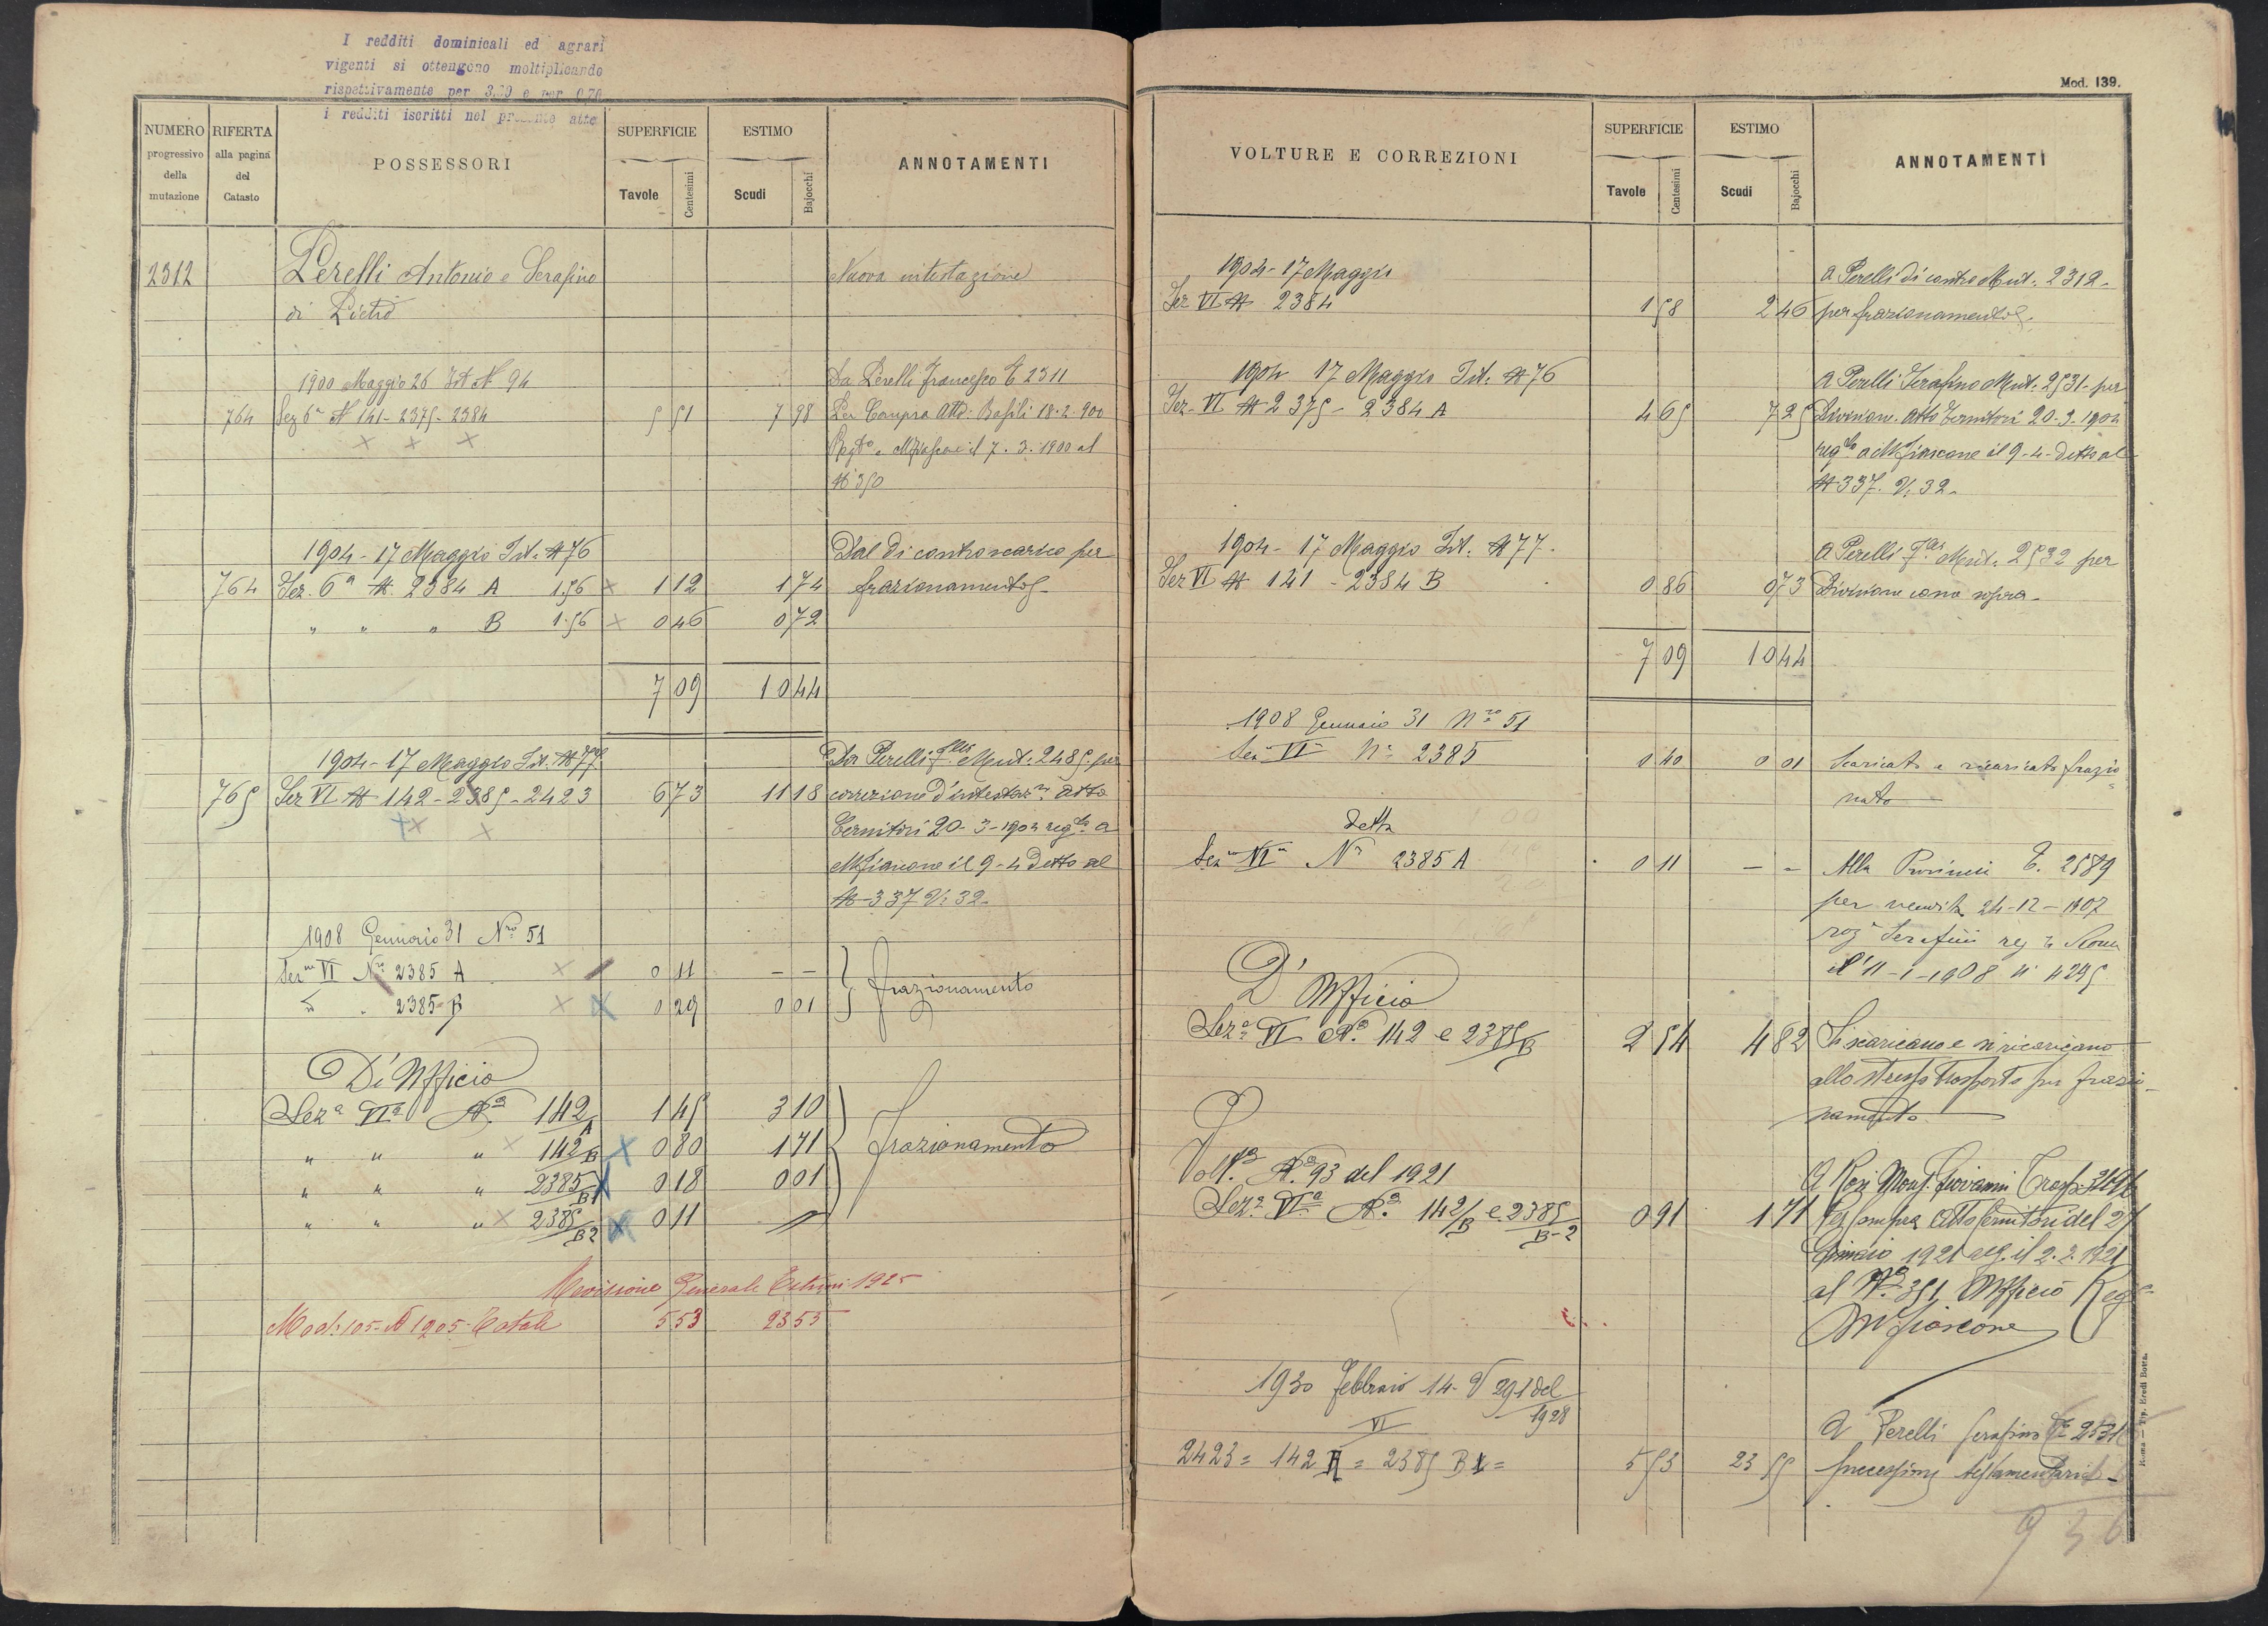 I redditi dominicali ed agrari
vigenti si ottengono moltiplicando
rispettivamente per 3,20 e per 0,70
i redditi iscritti nel presente atto
NUMERO progressivo della mutazione
RIFERTA alla pagina del Catasto
POSSESSORI
SUPERFICIE
Tavole Centesimi
ESTIMO
Scudi Bajocchi
ANNOTAMENTI
2312 Perelli Antonio e Serafino Nuova intestazione
di Pietro
1900 Maggio 26 Ist N 94 Da Perelli Francesco T 2311
764 Sez 6a N 141 - 2375 - 2384 5 51 7 98 Per Compra Atto: Basili 18.2.900
Regto a Mfiascone il 7. 3. 1900 al
N 350
1904 - 17 Maggio Ist. N 76 Dal di contro scarico per
764 Sez. 6a N. 2384 A 1.56 1 12 1 74 frazionamento
" " " B 1.56 0 46 0 72
7 09 10 44
1904 - 17 Maggio Ist. N 77 Da Perelli Mut. 2485 per
765 Sez VI N 142 - 2385 - 2423 6 73 11 18 correzione d'intestazne atto
Cernitori 20 - 3 - 1904 regto a
Mfiascone il 9 - 4 detto al
N - 337 V. 32.
1908 Gennaio 31 Nro 51
Sezne VI No 2385 A 0 11 - -
" . 2385 B 0 29 0 01 frazionamento
Di Ufficio
Seza VIa No 142 A 1 45 3 10
" " " 142 B 0 80 1 71 frazionamento
" " " 2385 B1 0 18 0 01
" " " 2385 B2 0 11
Revisione Generale Estimi 1925
Mod. 105 - N 1205 - Totale 5 53 23 55
Mod. 139.
VOLTURE E CORREZIONI
SUPERFICIE
Tavole Centesimi
ESTIMO
Scudi Bajocchi
ANNOTAMENTI
1904 - 17 Maggio A Perelli di contro Mut. 2312 -
Sez VI N 2384 1 58 2 46 per frazionamento
1904 17 Maggio Ist. N 76 A Perelli Serafino Mut. 2531 per
Sez. VI N 2375 - 2384 A 4 65 7 25 Divisione. Atto Cernitori 20-3-1904
regto a Mfiascone il 9-4-detto al
N 337. V. 32.
1904 - 17 Maggio Ist. N 77 - A Perelli Mut. 2532 per
Sez VI N 141 - 2384 B 0 86 0 73 Divisione come sopra -
7 09 10 44
1908 Gennaio 31 Nro 51
Sez VI No 2385 0 40 0 01 Scaricato e ricaricato frazio
nato
detto
Sezne VIa No 2385 A 0 11 - - Alla Provincia T. 2589
per vendita 24-12-1907
rog Serafini reg a Roma
il 11-1-1908 n 4295
D' Ufficio
Seza VI No 142 e 2385 B 2 54 4 82 Si scaricano e si ricaricano
allo stesso trasporto per frazio
namento
Volta No 93 del 1921 A Rosi Monsr Giovanni Trasp.
Seza VIa No 142/B e 2385 B-2 0 91 1 71 Per Compra Atto Cernitori del 27
Gennaio 1921 reg. il 2. 2. 1921
al No 351 Ufficio Regro
Mfiascone
1930 Febbraio 14 - V 291 del 1928
VI A Perelli Serafino T 2531
2423 = 142 A = 2385 B1 = 5 53 23 55 successione testamentaria -
936
Roma — Tip. Eredi Botta.